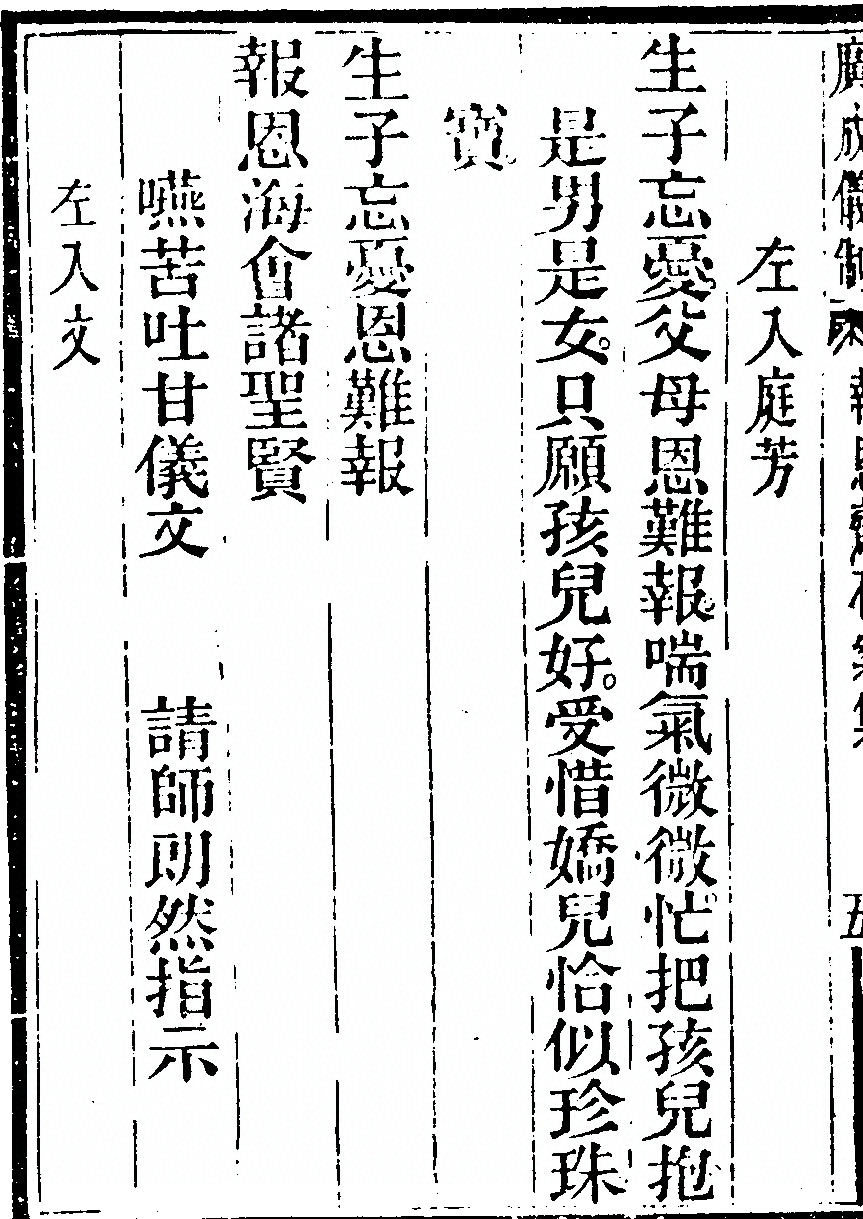 廣成儀制 報恩齋 五
左入庭芳
生子忘憂。父母恩難報。喘氣微微。忙把孩兒抱。
是男是女。只願孩兒好。受惜嬌兒恰似珍珠
寶。
生子忘憂恩難報
報恩海會諸聖賢
嚥苦吐甘儀文　請師朗然指示
左入文